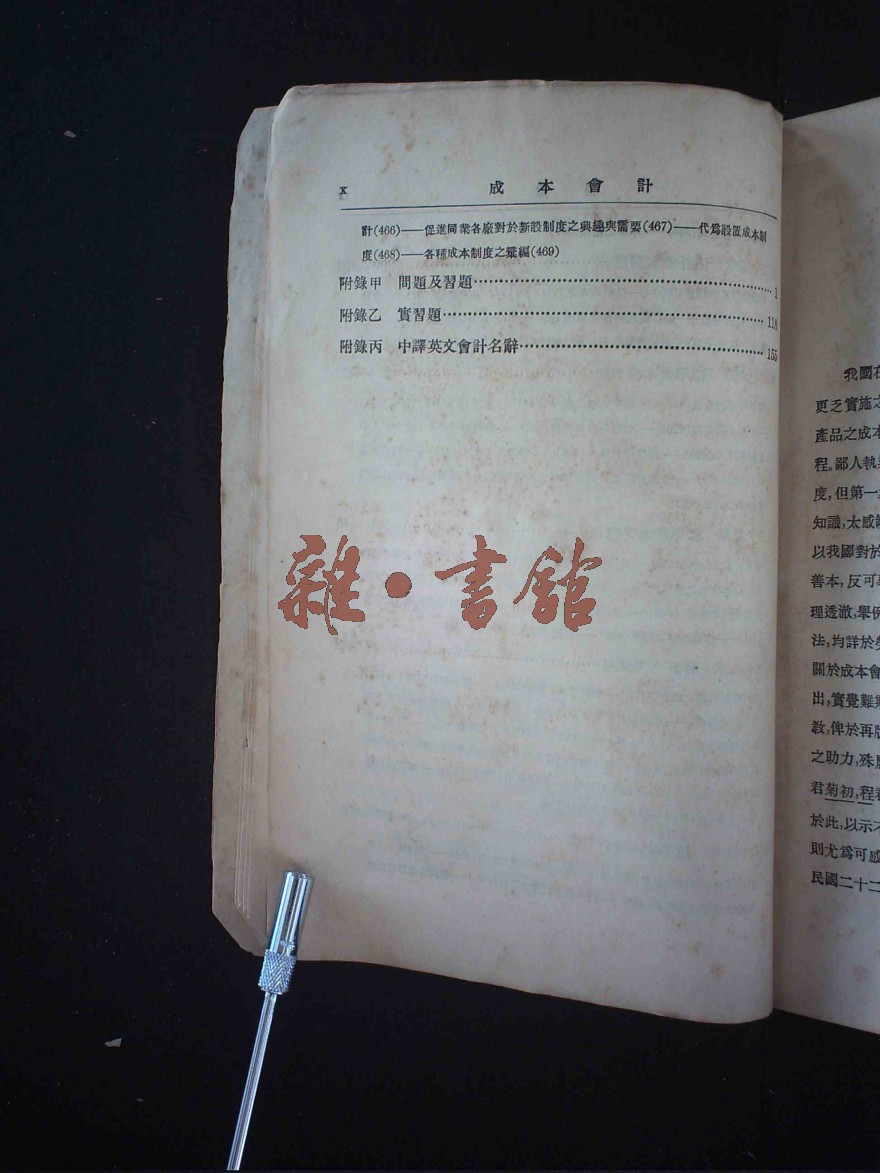 x 成本會計
計(466)——促進同業各廠對於新設制度之興趣與需要(467)——代爲設置成本制
度(468)——各種成本制度之彙編(469)
附錄甲 問題及習題 1
附錄乙 實習題 118
附錄丙 中譯英文會計名辭 155
雜•書館
我國在
更乏實施之
產品之成本
程。鄙人執業
度,但第一
知識,太感
以我國對於
善本,反可
理透澈,舉例
法,均詳於
關於成本會
出,實覺難
敎,俾於再版
之助力,殊
君菊初,程君
於此,以示不
則尤爲可感
民國二十二